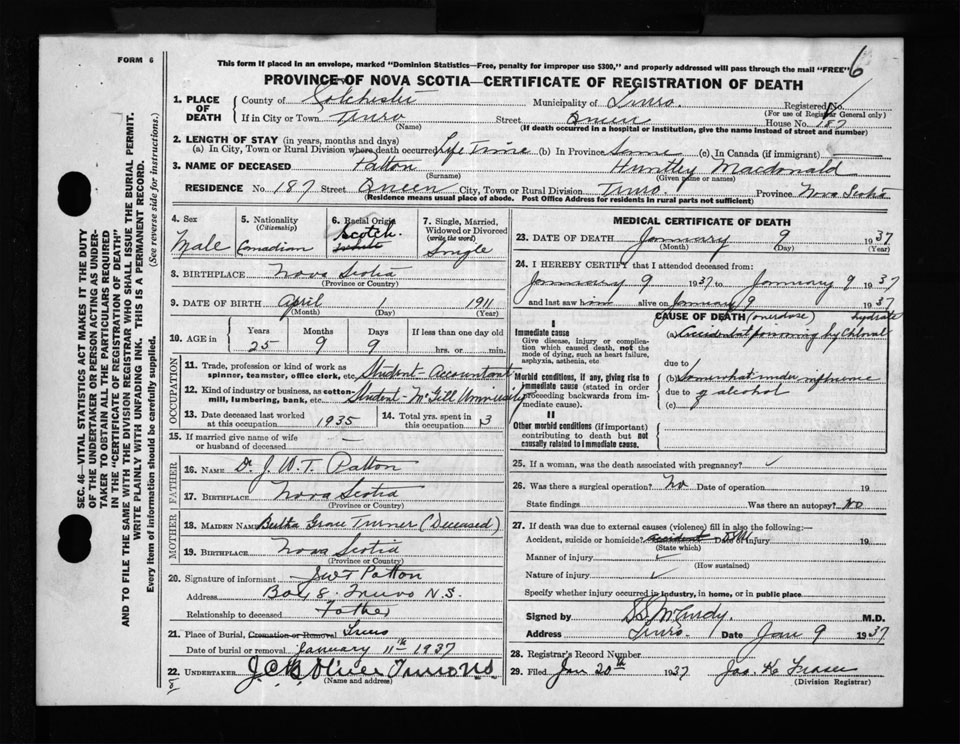 FORM 6
This form if placed in an envelope, marked "Dominion Statistics—Free, penalty for improper use $300," and properly addressed will pass through the mail "FREE" 6
PROVINCE OF NOVA SCOTIA—CERTIFICATE OF REGISTRATION OF DEATH
SEC. 46—VITAL STATISTICS ACT MAKES IT THE DUTY
OF THE UNDERTAKER OR PERSON ACTING AS UNDER-
TAKER TO OBTAIN ALL THE PARTICULARS REQUIRED
IN THE "CERTIFICATE OF REGISTRATION OF DEATH"
AND TO FILE THE SAME WITH THE DIVISION REGISTRAR WHO SHALL ISSUE THE BURIAL PERMIT.
WRITE PLAINLY WITH UNFADING INK. THIS IS A PERMANENT RECORD.
Every item of information should be carefully supplied. (See reverse side for instructions.)
1. PLACE OF DEATH
County of Colchester Municipality of Truro. Registered No.
(For use of Registrar General only)
If in City or Town Truro Street Queen House No. 187
(Name) (If death occurred in a hospital or institution, give the name instead of street and number)
2. LENGTH OF STAY (in years, months and days)
(a) In City, Town or Rural Division where death occurred Life Time (b) In Province Same (c) In Canada (if immigrant)
3. NAME OF DECEASED Patton Huntley Macdonald
(Surname) (Given name or names)
RESIDENCE No. 187 Street Queen City, Town or Rural Division Truro. Province Nova Scotia
(Residence means usual place of abode. Post Office Address for residents in rural parts not sufficient)
4. Sex Male
5. Nationality (Citizenship) Canadian
6. Racial Origin Scotch
7. Single, Married, Widowed or Divorced (write the word) Single
8. BIRTHPLACE Nova Scotia
(Province or Country)
9. DATE OF BIRTH April 1 1911
(Month) (Day) (Year)
10. AGE in Years Months Days If less than one day old
25 9 9 hrs. or min.
OCCUPATION
11. Trade, profession or kind of work as
spinner, teamster, office clerk, etc. Student-Accountant
12. Kind of industry or business, as cotton
mill, lumbering, bank, etc. Student-McGill University
13. Date deceased last worked
at this occupation 1935
14. Total yrs. spent in
this occupation 3
15. If married give name of wife
or husband of deceased —
FATHER
16. NAME Dr. J. W. T. Patton
17. BIRTHPLACE Nova Scotia
(Province or Country)
MOTHER
18. MAIDEN NAME Bertha Grace Turner (Deceased)
19. BIRTHPLACE Nova Scotia
(Province or Country)
20. Signature of informant JWT Patton
Address Box 48 Truro N.S.
Relationship to deceased Father
21. Place of Burial, Cremation or Removal Truro
Date of burial or removal January 11th 1937
22. UNDERTAKER J.C.B. Oliver Truro NS
(Name and address)
MEDICAL CERTIFICATE OF DEATH
23. DATE OF DEATH January 9 1937
(Month) (Day) (Year)
24. I HEREBY CERTIFY that I attended deceased from:
January 9 1937 to January 9 1937
and last saw him alive on January 9 1937
CAUSE OF DEATH (overdose) hydrate
I
Immediate cause
Give disease, injury or complication which caused death, not the mode of dying, such as heart failure, asphyxia, asthenia, etc
(a) Accidental poisoning by Chloral
due to
Morbid conditions, if any, giving rise to immediate cause (stated in order proceeding backwards from immediate cause).
(b) Somewhat under influence
due to of alcohol
(c)
II
Other morbid conditions (if important) contributing to death but not causally related to immediate cause.
25. If a woman, was the death associated with pregnancy? ✓
26. Was there a surgical operation? No. Date of operation 19
State findings Was there an autopsy? No
27. If death was due to external causes (violence) fill in also the following:—
Accident, suicide or homicide? accident Date of injury 19
(State which)
Manner of injury ✓
(How sustained)
Nature of injury ✓
Specify whether injury occurred in industry, in home, or in public place
Signed by McCurdy. M.D.
Address Truro. Date Jan 9 1937
28. Registrar's Record Number
29. Filed Jan 20th 1937 Jas. K. Fraser
(Division Registrar)